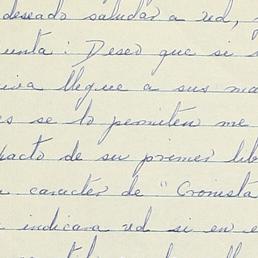 deseado saludar a ud,
unta: Deseo que si
llegue a sus ma
es se lo permiten me
pacto de su primer lib
caracter de "Cronista
indicara ud si en e